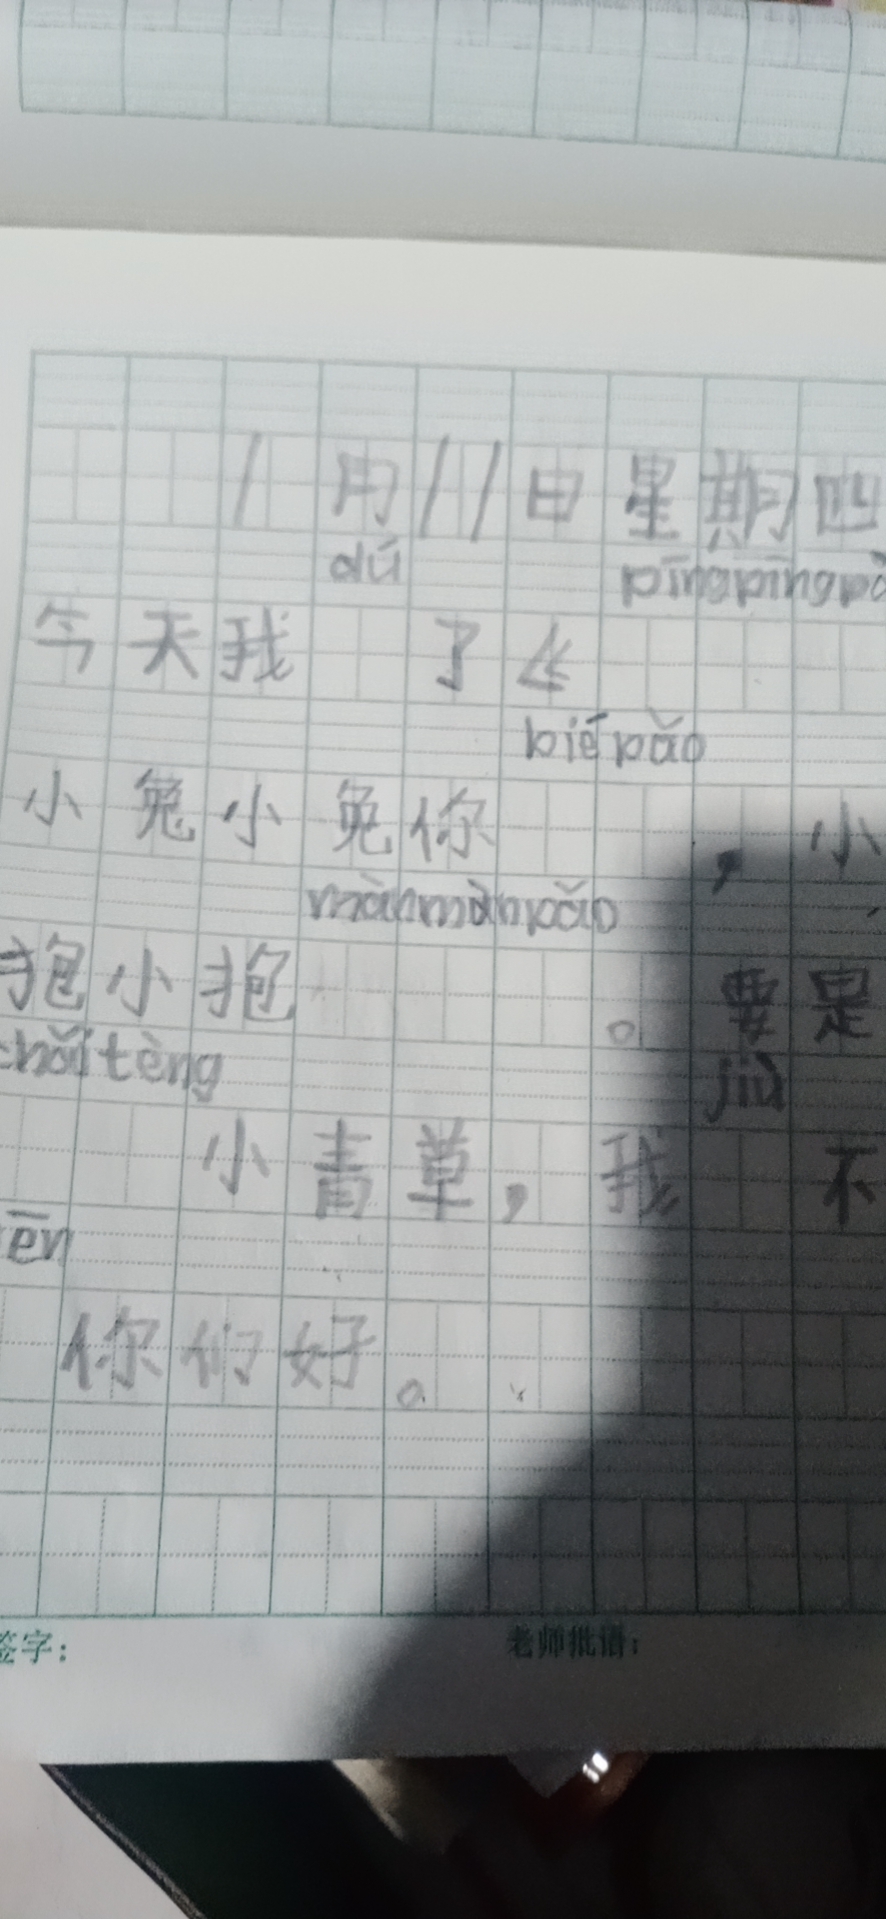 1月11日星期四
dú
今天我 了《
bié pǎo
小兔小兔你 ，小
mànmànpǎo
抱小抱 。要是
jiù
小青草，我 不
你们好。
签字：
老师批语：